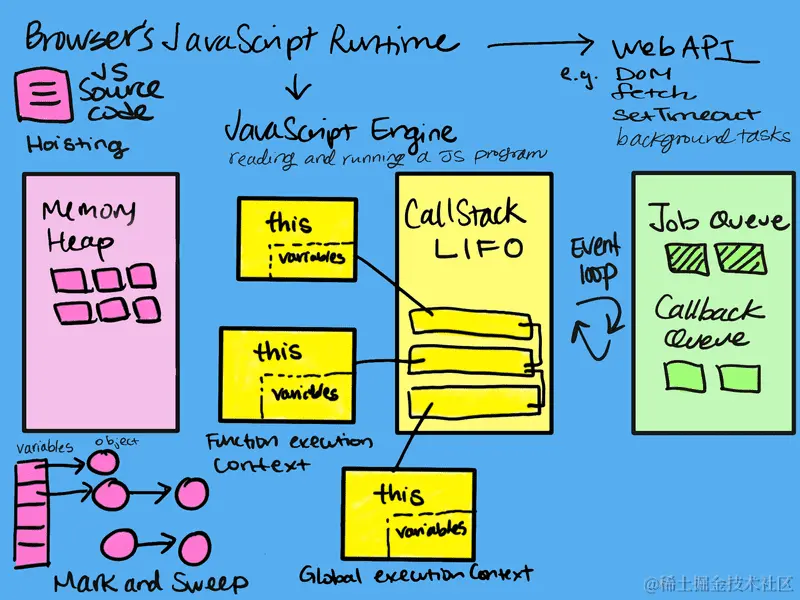 Browser's JavaScript Runtime
Web API
e.g. DOM
fetch
setTimeout
background tasks
JS
Source
code
Hoisting
JavaScript Engine
reading and running a JS program
Memory
Heap
this
variables
CallStack
LIFO
Event
loop
Job Queue
Callback
Queue
this
variables
Function execution
Context
variables
object
Mark and Sweep
this
variables
Global execution Context
@稀土掘金技术社区